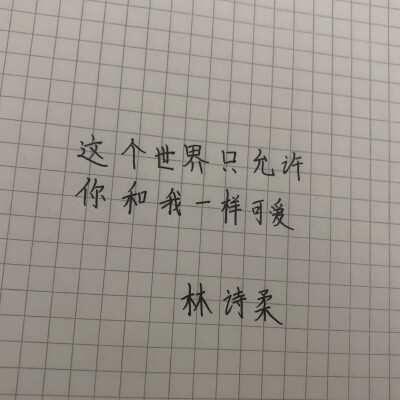 这个世界只允许
你和我一样可爱
林诗柔